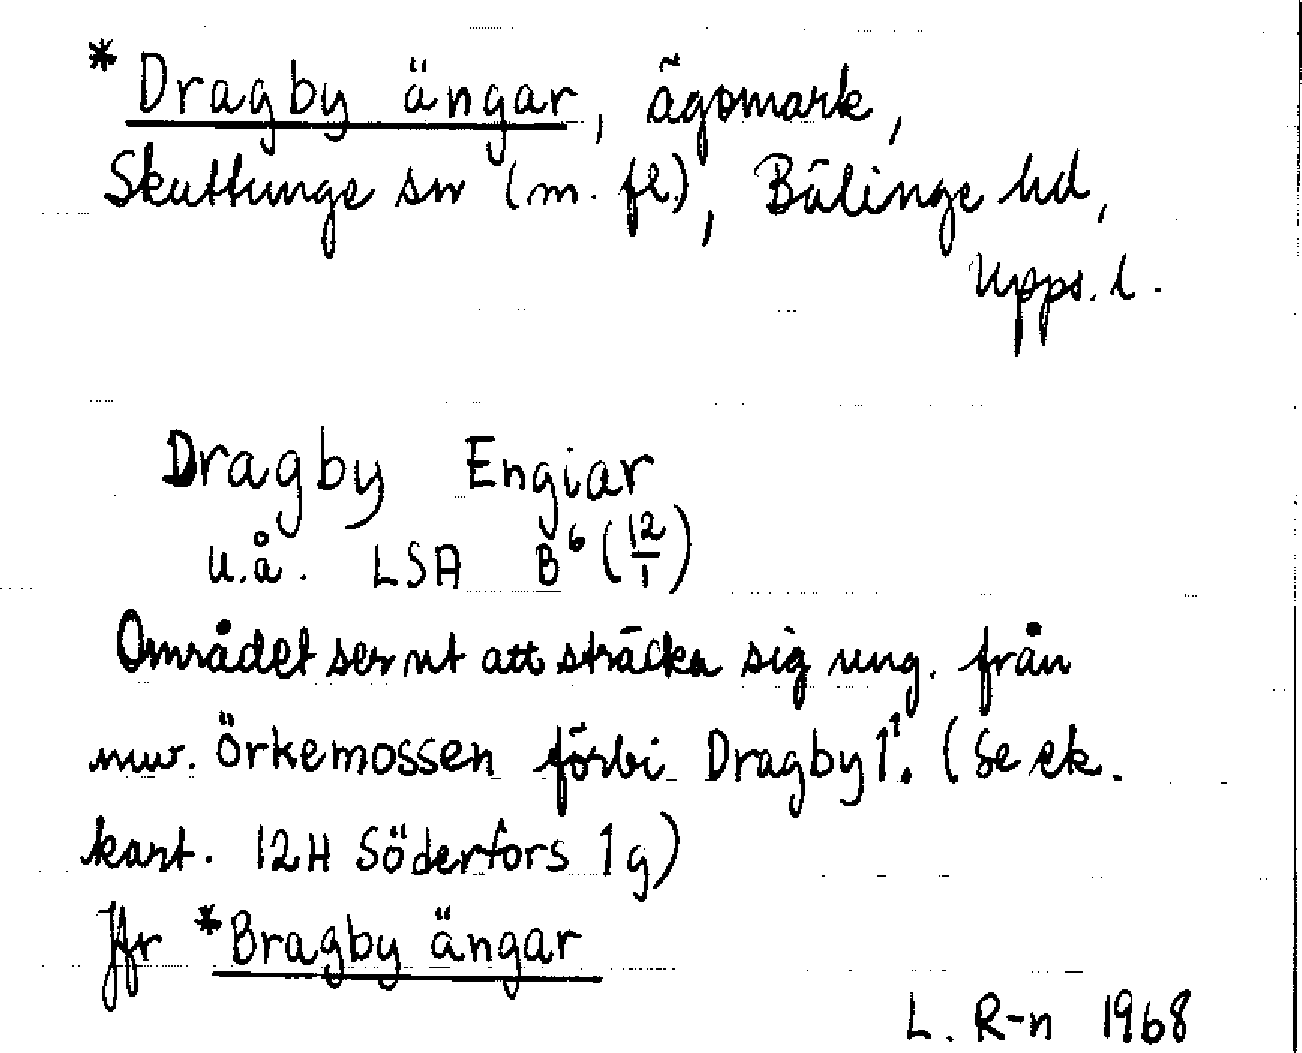 *Dragby ängar, ägomark,
Skuttunge sn (m. fl.), Bälinge hd,
Upps. l.
Dragby Engiar
u.å. LSA B⁶ (12/1)
Området ser ut att sträcka sig ung. från
nuv. Örkemossen förbi Dragby 1¹. (Se ek.
kart. 12H Söderfors 1g)
Jfr *Bragby ängar
L. R-n 1968